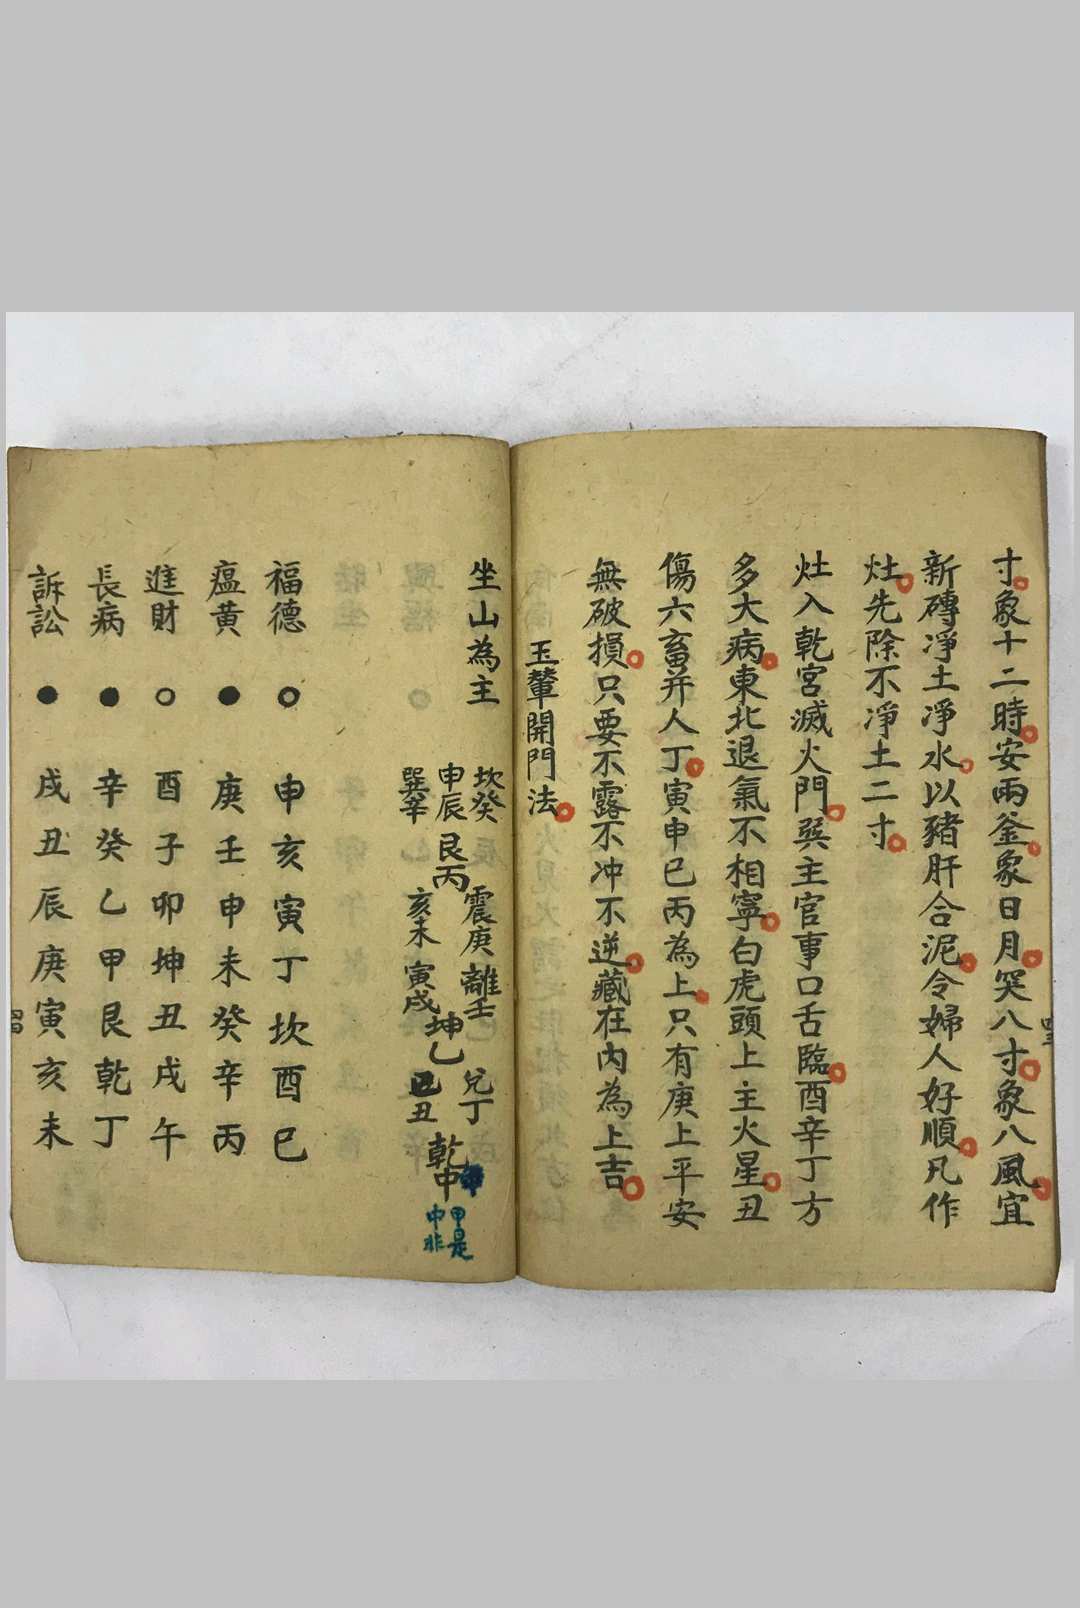 寸象十二時安兩釜象日月突八寸象八風宜
新磚淨土淨水以豬肝合泥令婦人好順凡作
灶先除不淨土二寸
灶入乾宮滅火門巽主官事口舌臨酉辛丁方
多大病東北退氣不相寧白虎頭上主火星丑
傷六畜并人丁寅申巳丙為上只有庚上平安
無破損只要不露不冲不逆藏在內為上吉
玉輦開門法
坐山為主
坎癸申辰
艮丙
巽辛
震庚亥未
離壬寅戌
坤乙
兌丁巳丑
乾中
甲是
中非
福德 申亥寅丁坎酉巳
瘟黄 庚壬申未癸辛丙
進財 酉子卯坤丑戌午
長病 辛癸乙甲艮乾丁
訴訟 戌丑辰庚寅亥未
四五